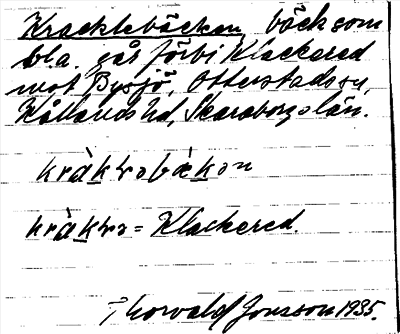 Kracklebäcken, bäck som
bl.a. går förbi Klackered
mot Bysjö, Otterstad sn,
Kållands hd, Skaraborgs län.
kràkləbækən
kràklə = Klackered.
Thorvald Jonsson 1935.